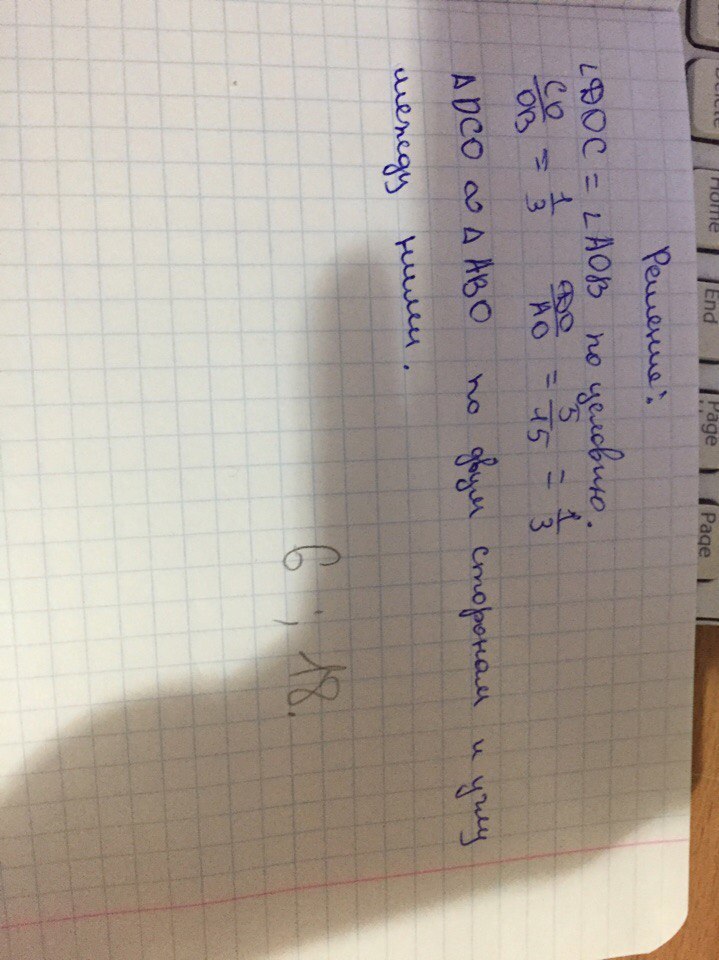 Решение:
∠DOC = ∠AOB по условию.
CO/OB = 1/3 DO/AO = 5/15 = 1/3
Δ DCO ∾ Δ ABO по двум сторонам и углу
между ними.
6 ; 18.
Home
End
Page
Page